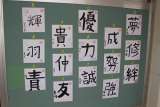 夢 成 優 貴 輝
修 努 力 仲 羽
絆 強 誠 友 青